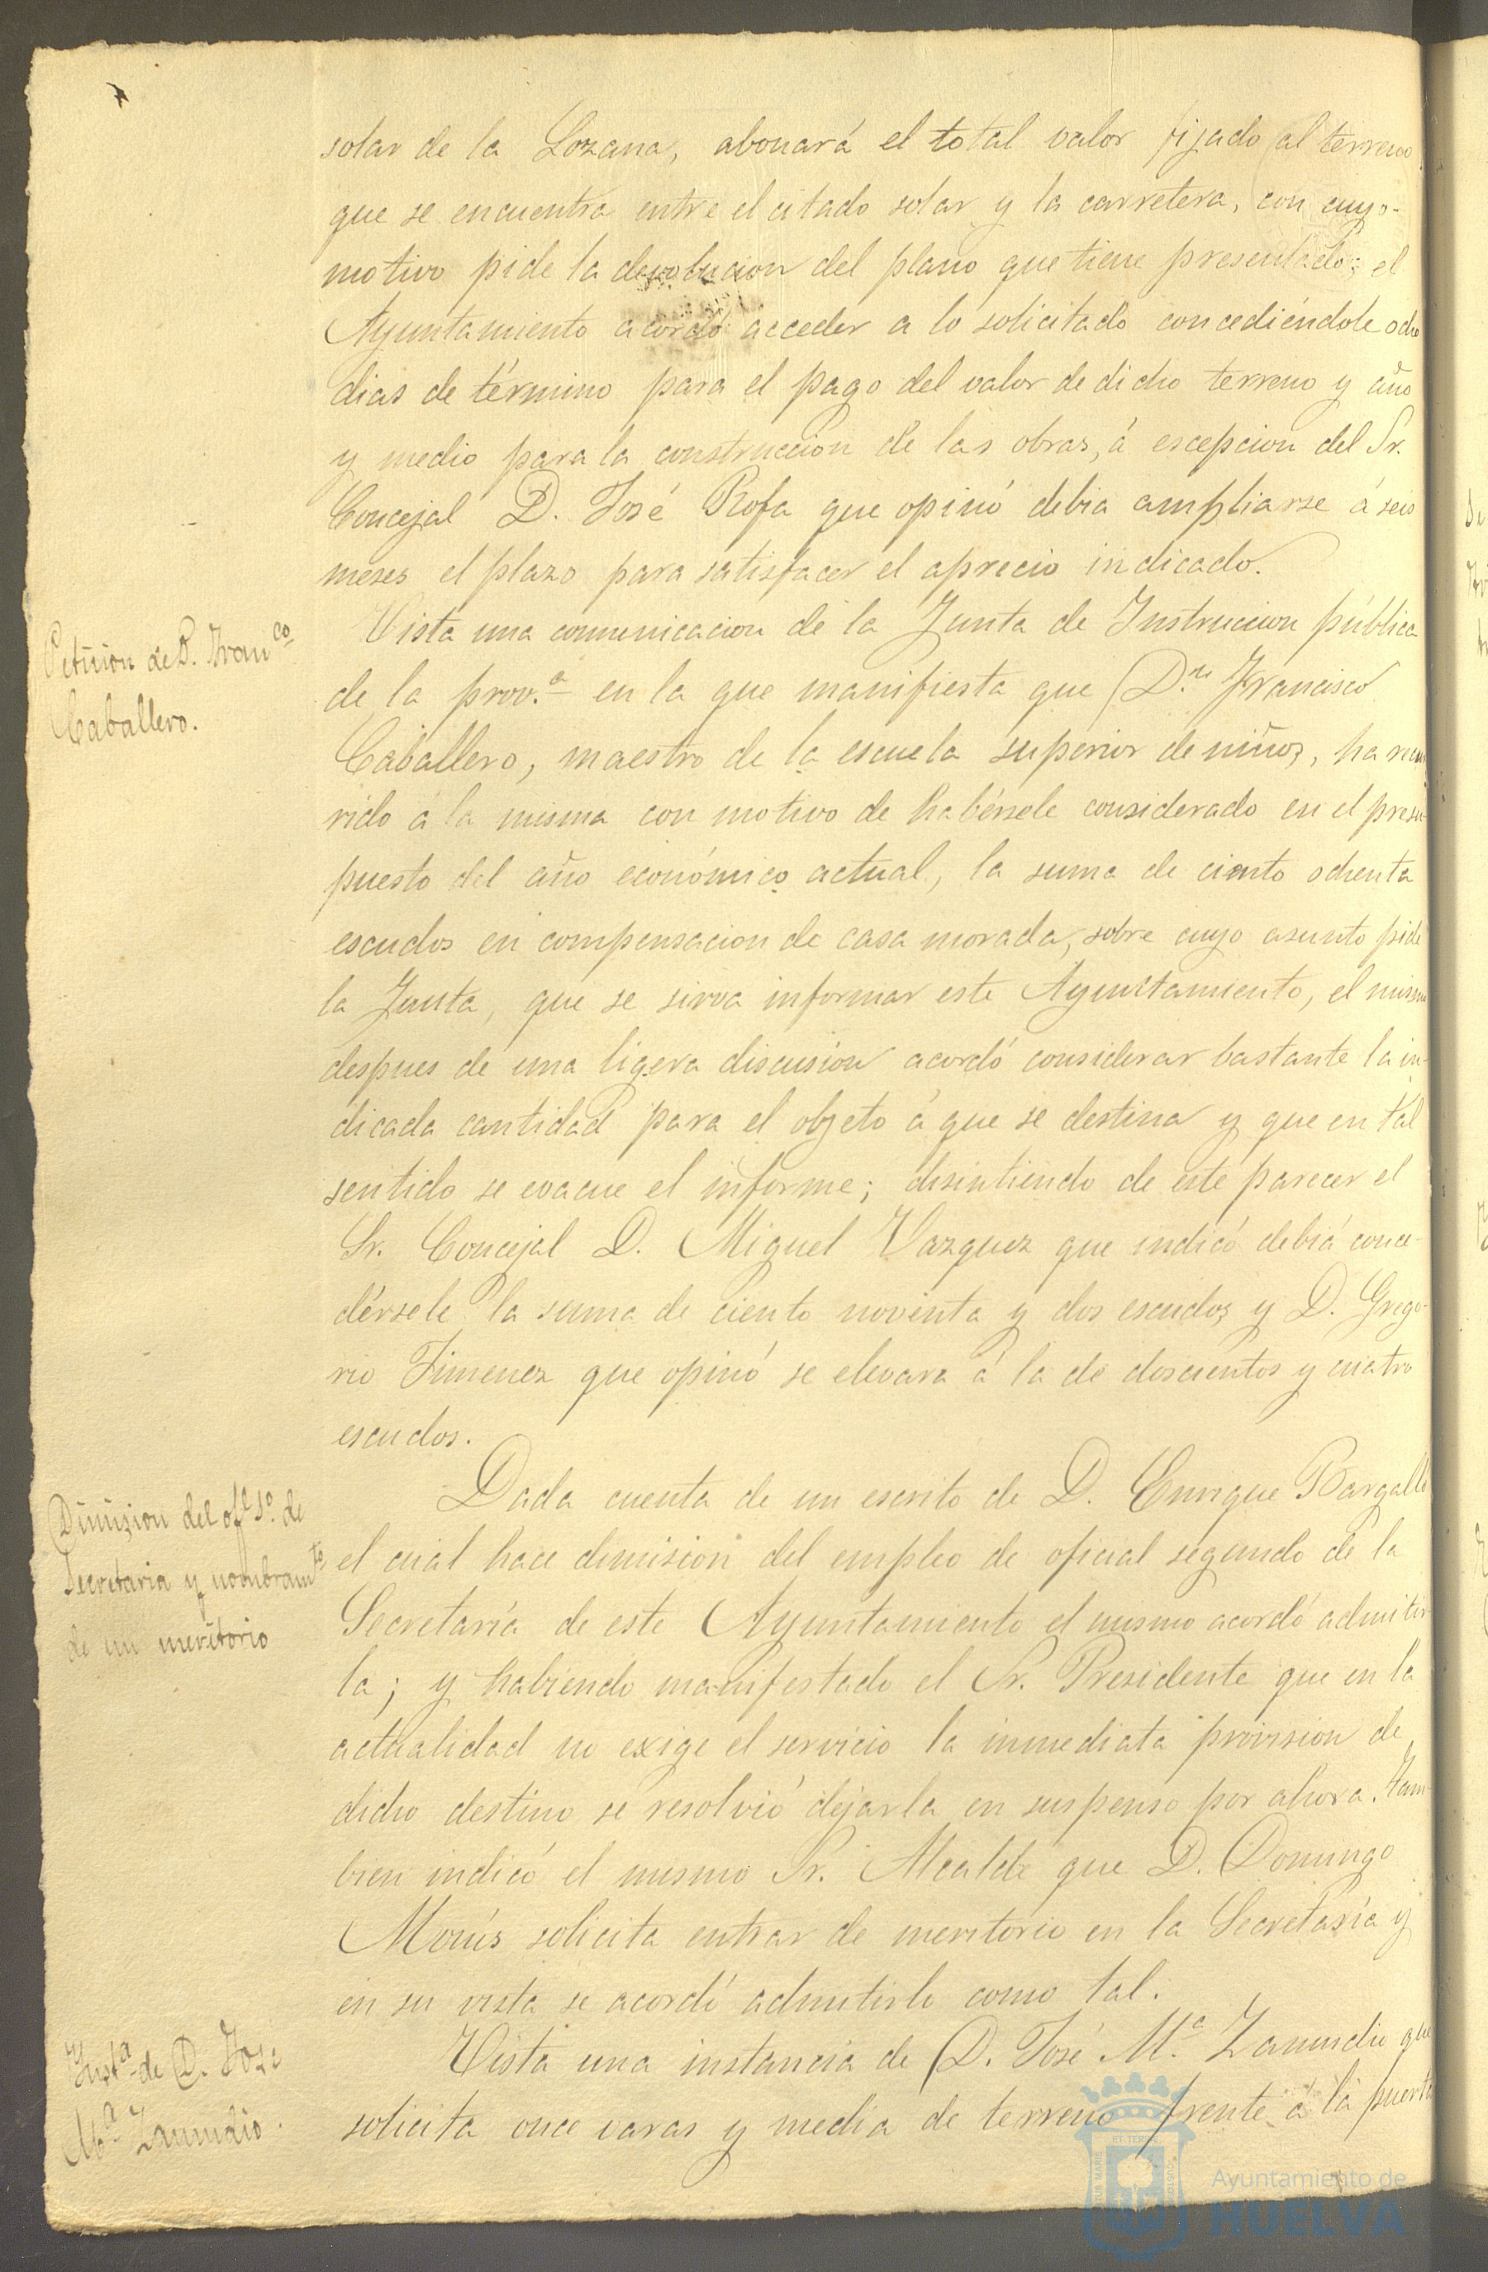 solar de la Lozana, abonará el total valor fijado al terreno
que se encuentra entre el citado solar y la carretera, con cuyo
motivo pide la devolucion del plano que tiene presentado; el
Ayuntamiento acordó acceder a lo solicitado concediéndole ocho
dias de término para el pago del valor de dicho terreno y año
y medio para la construccion de las obras, á escepcion del Sr.
Concejal D. José Rofa que opinó debia ampliarse á seis
meses el plazo para satisfacer el aprecio indicado.
Peticion de D. Franco
Caballero.
Vista una comunicacion de la Junta de Instruccion pública
de la prov.a en la que manifiesta que D.n Francisco
Caballero, maestro de la escuela superior de niños, ha recur
rido á la misma con motivo de habérsele considerado en el presu-
puesto del año económico actual, la suma de ciento ochenta
escudos en compensacion de casa morada, sobre cuyo asunto pide
la Junta, que se sirva informar este Ayuntamiento, el mismo
despues de una ligera discusion acordó considerar bastante la in-
dicada cantidad para el objeto á que se destina y que en tál
sentido se evacue el informe; disintiendo de este parecer el
Sr. Concejal D. Miguel Vazquez que indicó debiá conce-
dérsele la suma de ciento noventa y dos escudos y D. Grego-
rio Jimenez que opinó se elevara á la de doscientos y cuatro
escudos.
Dimision del ofl. So. de
Secretaria y nombramto
de un meritorio
Dada cuenta de un escrito de D. Enrique Bargallo
el cual hace dimision del empleo de oficial segundo de la
Secretaría de este Ayuntamiento el mismo acordó admitir
la; y habiendo manifestado el Sr. Presidente que en la
actualidad no exige el servicio la inmediata provision de
dicho destino se resolvió dejarla en suspenso por ahora. Tam-
bien indicó el mismo Sr. Alcalde que D. Domingo
Monís solicita entrar de meritorio en la Secretaría y
en su vista se acordó admitirlo como tal.
Insta de D. José
Ma Zamudio.
Vista una instancia de D. José M.a Zamudio que
solicita once varas y media de terreno frente á la puerta
Ayuntamiento de
HUELVA